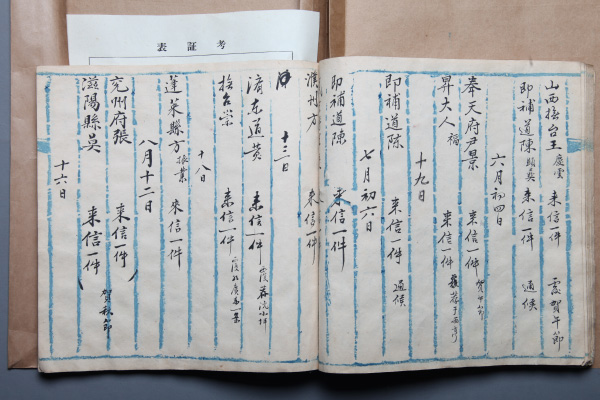 考証表
山西撫台王慶雲 来信一件 覆賀午節
即補道陳顕彝 来信一件 通候
六月初四日
奉天府尹景 来信一件 賀午節
昇大人福 来信一件
十九日
即補道陳 来信一件 通候
七月初六日
即補道陳 来信一件
濮州方 来信一件
十三日
済東道黄 来信一件
撫台崇 来信一件
十八日
蓬莱縣方振業 来信一件
八月十二日
兗州府張 来信一件
滋陽縣吳 来信一件 賀秋節
十六日